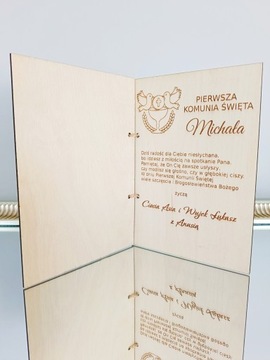 PIERWSZA
KOMUNIA ŚWIĘTA
Michała
Dziś radość dla Ciebie niesłychana,
bo idziesz z miłością na spotkanie Pana.
Pamiętaj, że On Cię zawsze usłyszy,
czy modlisz się głośno, czy w głębokiej ciszy.
W dniu Pierwszej Komunii Świętej
wiele szczęścia i Błogosławieństwa Bożego
życzą
Ciocia Asia i Wujek Łukasz
z Amelią